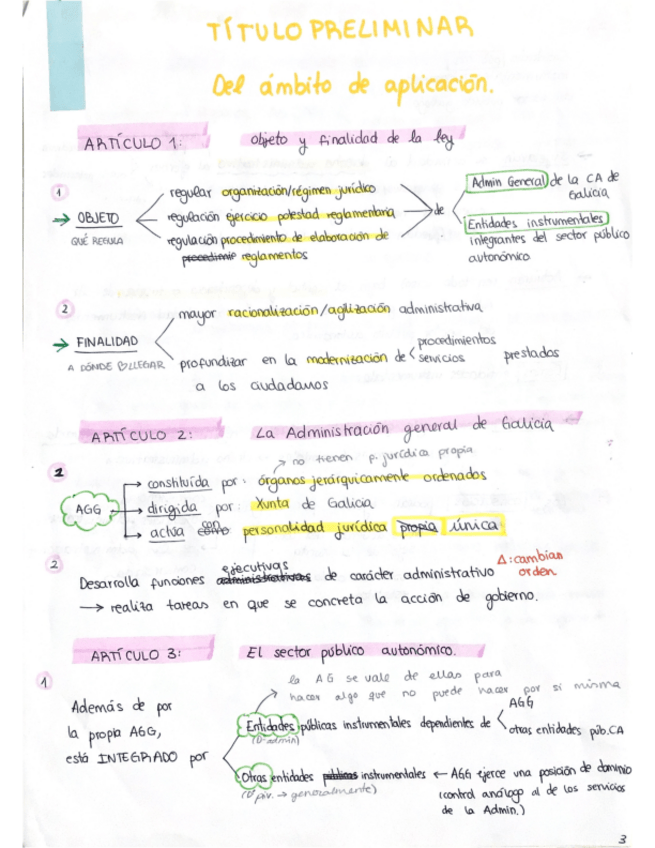 TÍTULO PRELIMINAR
Del ámbito de aplicación.
ARTÍCULO 1: Objeto y finalidad de la ley
1
→ OBJETO
QUÉ REGULA
regular organización/régimen jurídico
regulación ejercicio potestad reglamentaria
regulación procedimiento de elaboración de
procedimie reglamentos
de
Admin General de la CA de
Galicia
Entidades instrumentales
integrantes del sector público
autonómico
2
→ FINALIDAD
A DÓNDE LLEGAR
mayor racionalización/agilización administrativa
profundizar en la modernización de < procedimientos
servicios prestados
a los ciudadanos
ARTÍCULO 2: La Administración general de Galicia
→ no tienen p. jurídica propia
1
AGG
→ constituída por: órganos jerárquicamente ordenados
→ dirigida por: Xunta de Galicia
→ actúa como con personalidad jurídica propia única
2
Desarrolla funciones administrativas ejecutivas de carácter administrativo Δ: cambian
orden
→ realiza tareas en que se concreta la acción de gobierno.
ARTÍCULO 3: El sector público autonómico.
1
la AG se vale de ellas para
hacer algo que no puede hacer por si misma
Además de por
la propia AGG,
está INTEGRADO por
Entidades públicas instrumentales dependientes de < AGG
otras entidades púb.CA
(Dº admin)
Otras entidades públicas instrumentales ← AGG ejerce una posición de dominio
(Dº priv. → generalmente)
(control análogo al de los servicios
de la Admin.)
3